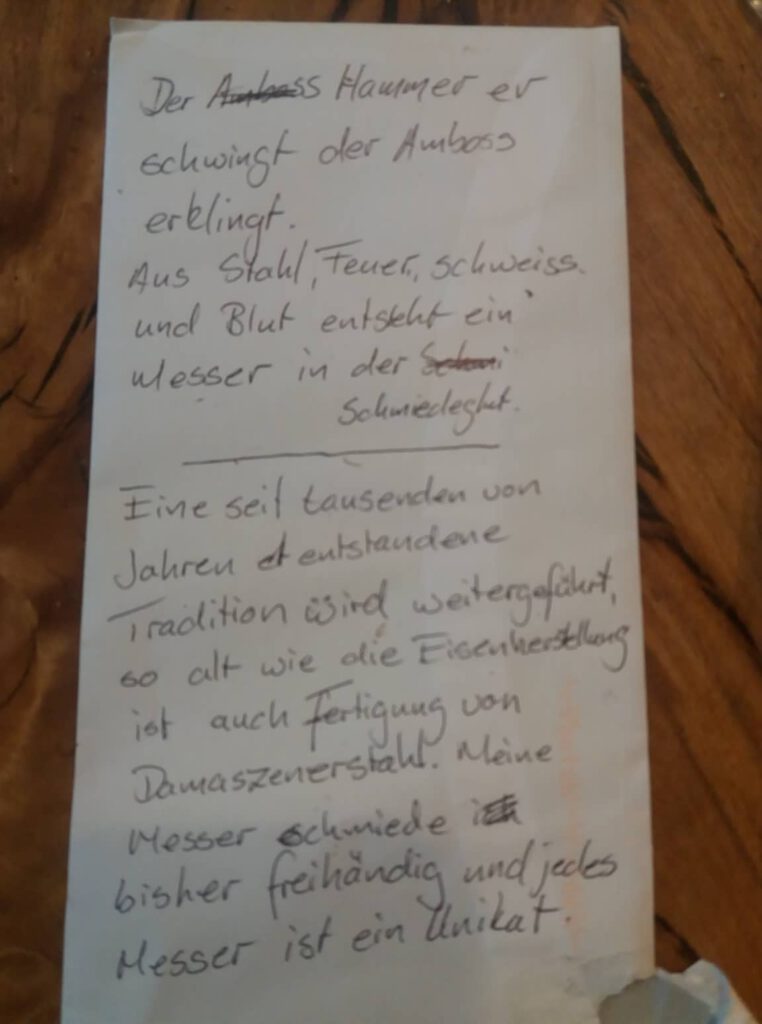 Der Amboss Hammer er
schwingt der Amboss
erklingt.
Aus Stahl, Feuer, schweiss
und Blut entsteht ein
Messer in der Schmi
Schmiedeglut.
Eine seit tausenden von
Jahren et entstandene
Tradition wird weitergeführt,
so alt wie die Eisenherstellung
ist auch Fertigung von
Damaszenerstahl. Meine
Messer schmiede
bisher freihändig und jedes
Messer ist ein Unikat.